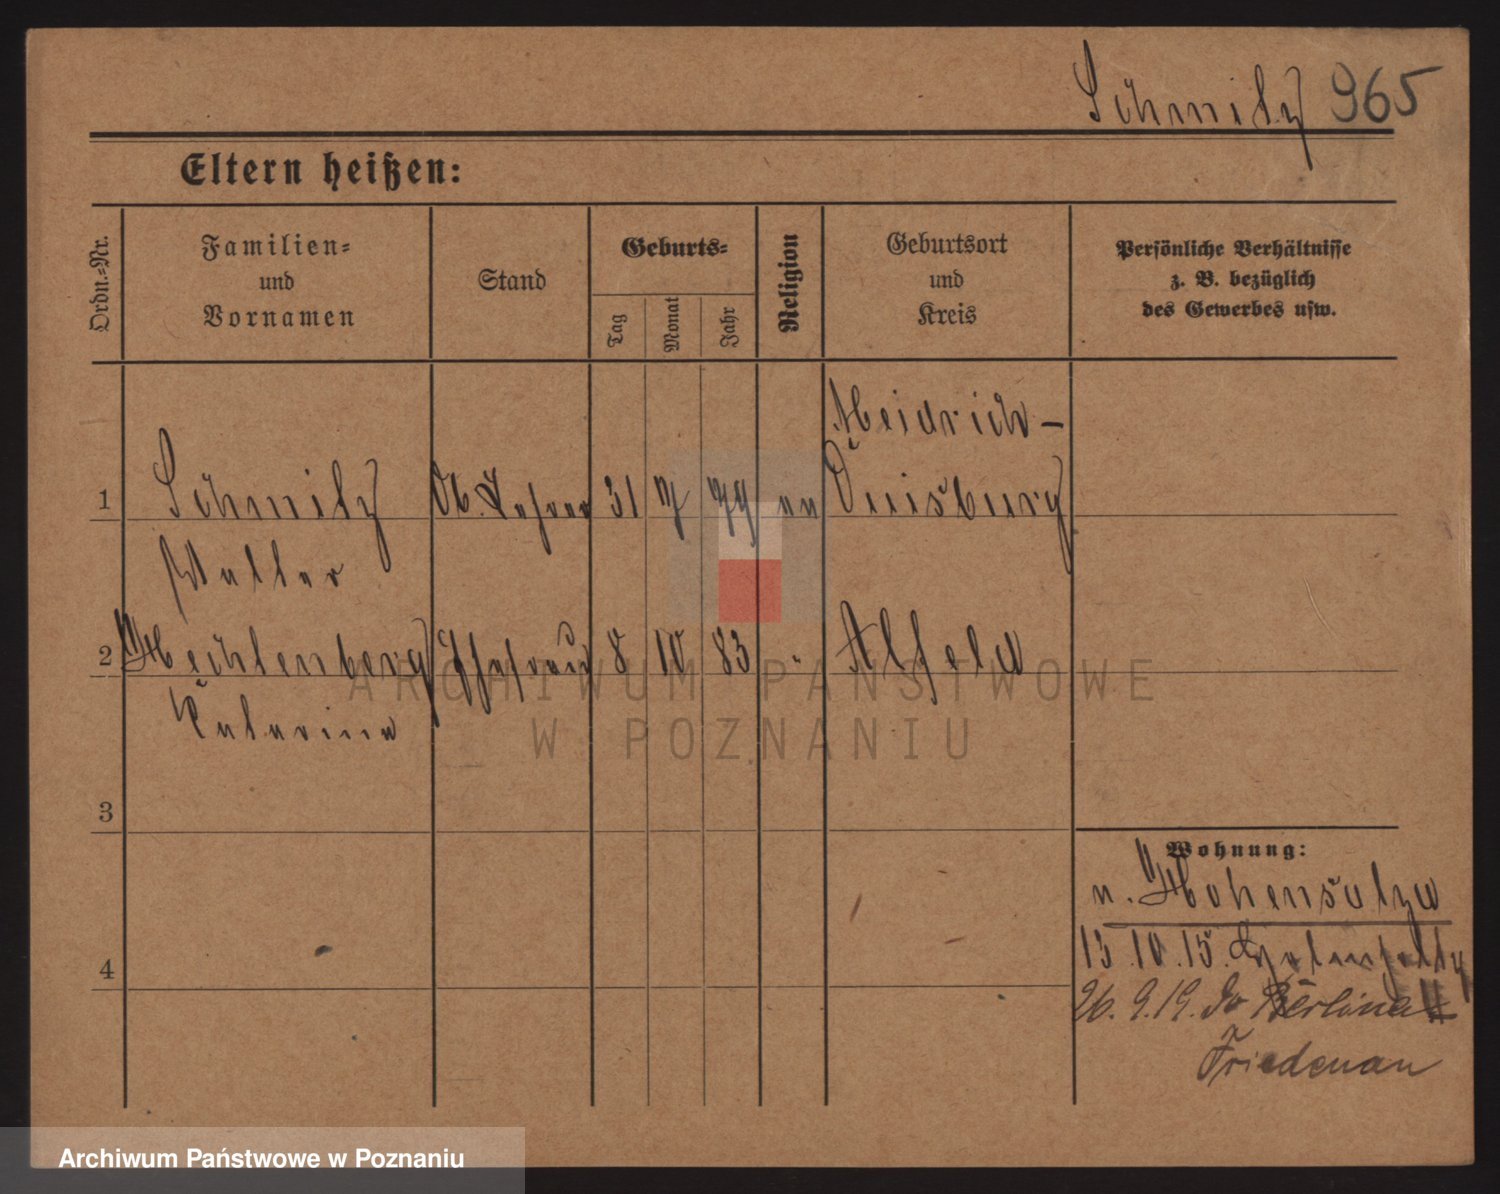 Schmitz 965
Eltern heißen:
Ordn.-Nr.
Familien-
und
Vornamen
Stand
Geburts-
Tag
Monat
Jahr
Religion
Geburtsort
und
Kreis
Persönliche Verhältnisse
z. B. bezüglich
des Gewerbes usw.
Meidrich-
1 Schmitz Ob. Lehrer 31 7 79 Duisburg
Walter
2 Mechlenberg Ehefrau 8 10 83 " Alfeld
Catarina
3
4
Wohnung:
n. Hohensalza
13.10.15.
26.9.19. do Berlina
Friedenau
ARCHIWUM PAŃSTWOWE
W POZNANIU
Archiwum Państwowe w Poznaniu